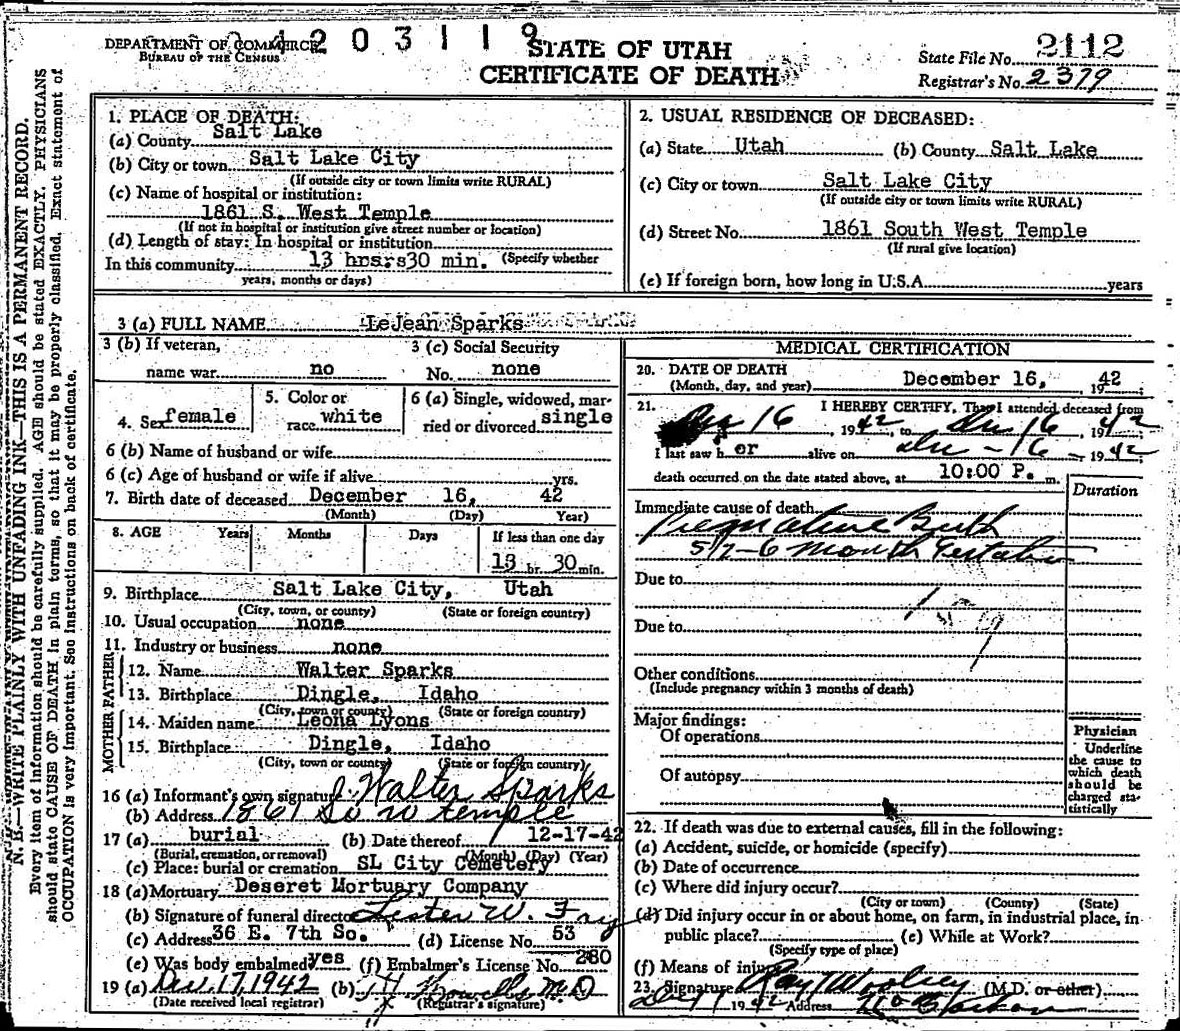 DEPARTMENT OF COMMERCE
BUREAU OF THE CENSUS
4203119
STATE OF UTAH
CERTIFICATE OF DEATH
State File No. 2112
Registrar's No. 2379
N. B.—WRITE PLAINLY WITH UNFADING INK—THIS IS A PERMANENT RECORD.
Every item of information should be carefully supplied. AGE should be stated EXACTLY. PHYSICIANS
should state CAUSE OF DEATH in plain terms, so that it may be properly classified. Exact statement of
OCCUPATION is very important. See instructions on back of certificate.
1. PLACE OF DEATH:
(a) County Salt Lake
(b) City or town Salt Lake City
(If outside city or town limits write RURAL)
(c) Name of hospital or institution:
1861 S. West Temple
(If not in hospital or institution give street number or location)
(d) Length of stay: In hospital or institution
In this community 13 hrs. 30 min. (Specify whether
years, months or days)
2. USUAL RESIDENCE OF DECEASED:
(a) State Utah (b) County Salt Lake
(c) City or town Salt Lake City
(If outside city or town limits write RURAL)
(d) Street No. 1861 South West Temple
(If rural give location)
(e) If foreign born, how long in U.S.A. years
3 (a) FULL NAME LeJean Sparks
3 (b) If veteran,
name war no
3 (c) Social Security
No. none
4. Sex female
5. Color or
race white
6 (a) Single, widowed, mar-
ried or divorced single
6 (b) Name of husband or wife
6 (c) Age of husband or wife if alive yrs.
7. Birth date of deceased December 16, 42
(Month) (Day) Year)
8. AGE Years Months Days If less than one day
13 hr. 30 min.
9. Birthplace Salt Lake City, Utah
(City, town, or county) (State or foreign country)
10. Usual occupation none
11. Industry or business none
FATHER
12. Name Walter Sparks
13. Birthplace Dingle, Idaho
(City, town or county) (State or foreign country)
MOTHER
14. Maiden name Leona Lyons
15. Birthplace Dingle, Idaho
(City, town or county) (State or foreign country)
16 (a) Informant's own signature J Walter Sparks
(b) Address 1861 So W temple
17 (a) burial (b) Date thereof 12-17-42
(Burial, cremation, or removal) (Month) (Day) (Year)
(c) Place: burial or cremation SL City Cemetery
18 (a) Mortuary Deseret Mortuary Company
(b) Signature of funeral director Lester W. Fry
(c) Address 36 E. 7th So. (d) License No. 53
(e) Was body embalmed? yes (f) Embalmer's License No. 280
19 (a) Dec. 17, 1942 (b) M.D
(Date received local registrar) (Registrar's signature)
MEDICAL CERTIFICATION
20. DATE OF DEATH
(Month, day, and year) December 16, 1942
21. I HEREBY CERTIFY, That I attended deceased from
16 1942, to Dec 16 1942
I last saw h er alive on Dec - 16 - 1942
death occurred on the date stated above, at 10:00 P. m.
Duration
Immediate cause of death
Premature Birth
5 1/2-6 month Gestation
Due to
Due to
159
Other conditions
(Include pregnancy within 3 months of death)
Major findings:
Of operations
Of autopsy
Physician
Underline
the cause to
which death
should be
charged sta-
tistically
22. If death was due to external causes, fill in the following:
(a) Accident, suicide, or homicide (specify)
(b) Date of occurrence
(c) Where did injury occur?
(City or town) (County) (State)
(d) Did injury occur in or about home, on farm, in industrial place, in
public place? (e) While at Work?
(Specify type of place)
(f) Means of injury
23. Signature Ray Woolsey (M.D. or other)
1942 Address